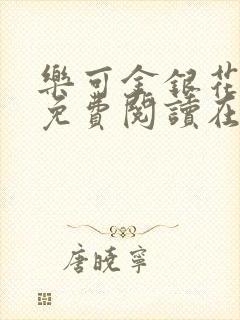 樂可金銀花
免費閱讀在
唐曉寧